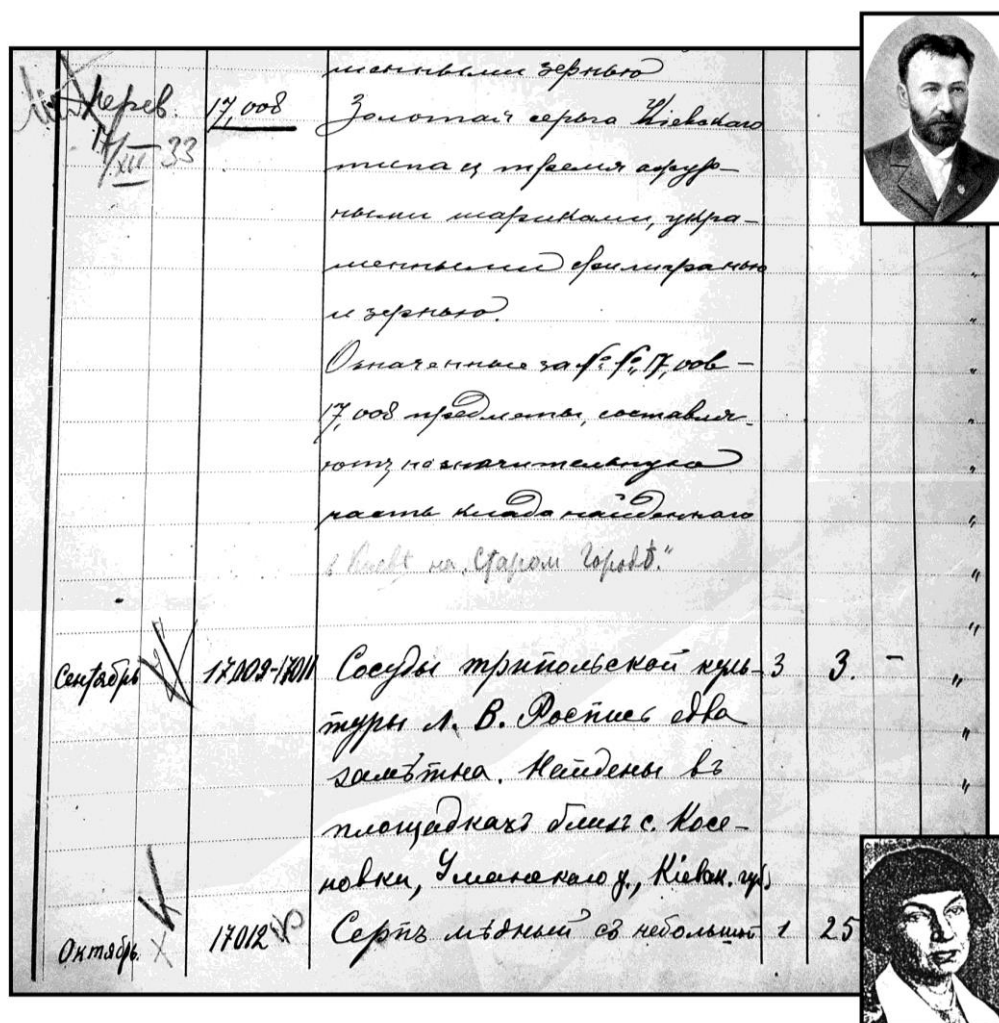 шенными зернью
перев. 17,008 Золотая серьга Кіевскаго
XII 33 типа съ тремя ажур-
ными шариками, укра-
шенными филигранью
и зернью.
Означенные за №№ 17,006 -
17,008 предметы, составля-
ютъ незначительную
часть клада найденнаго
в Киевѣ на „Старом Городѣ."
Сентябрь 17009-17011 Сосуды трипольской куль- 3 3. - "
туры А. В. Роспись едва
замѣтна. Найдены въ
площадкахъ близъ с. Косе-
новки, Уманскаго у., Кіевск. губ.
Октябрь. 17012 Серпъ мѣдный съ небольшой 1 25